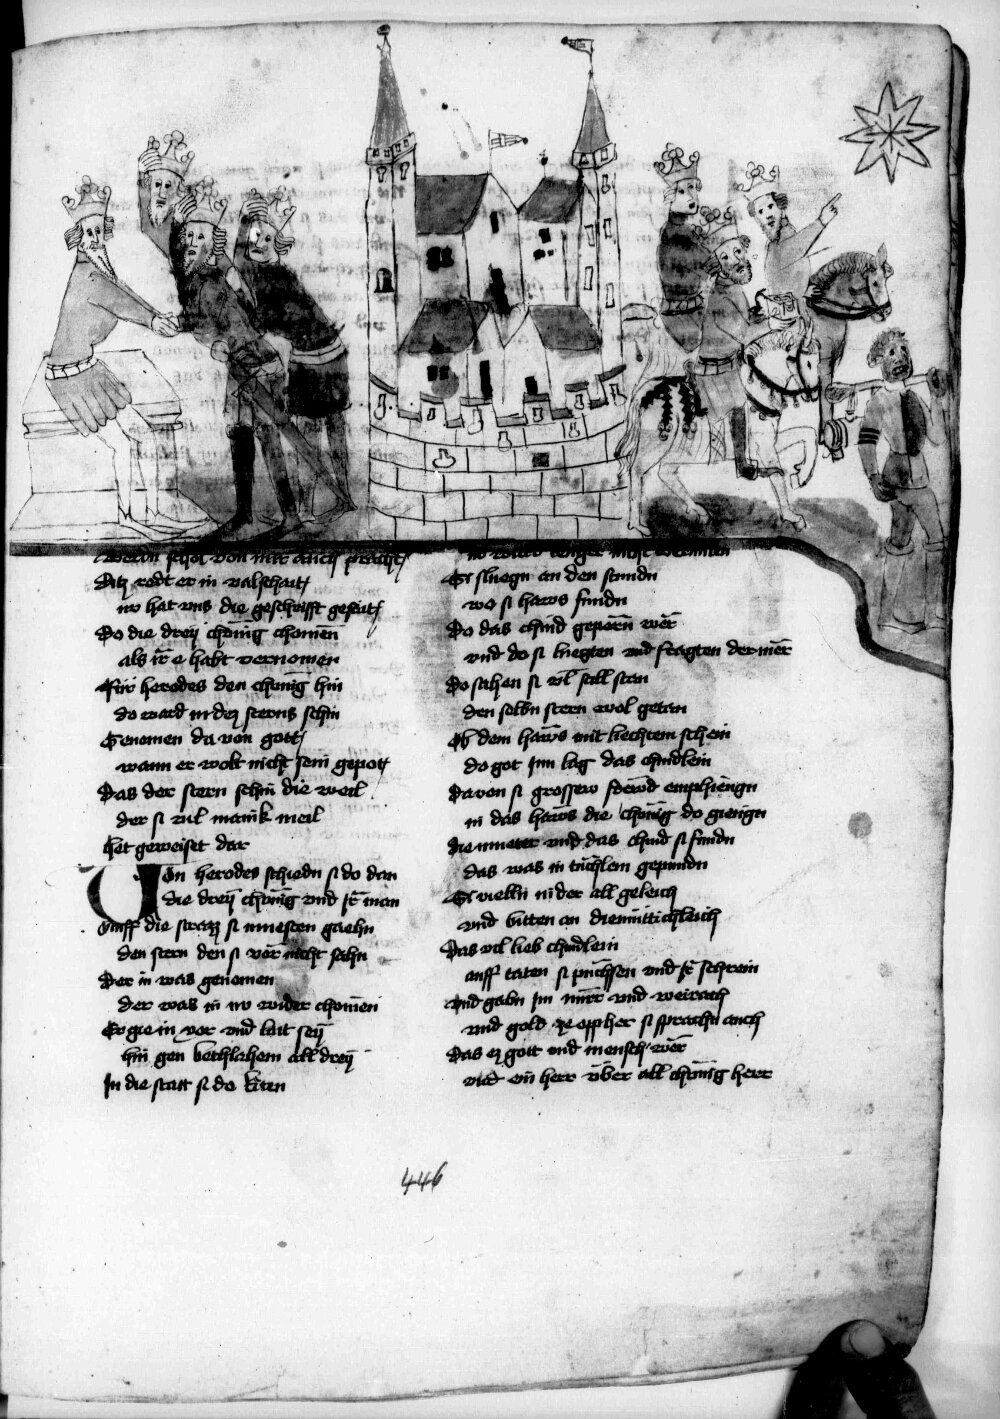 schol von mir auch
Ditz redt er in valschait
wo hat uns die geschrifft geseit
Do die dreÿ chönig chomen
als ir e habt vernomen
Für herodes den chunig hin
do ward in dez sterns schin
Genomen da von gott
wann er wolt nicht sein gepott
Das der stern schin die weil
der si vil manik meil
Het geweiset dar
Von herodes schiedn si do dan
die dreÿ chönig und ir man
Auff die strazz si muesten gaehn
den stern den si vor nicht sahn
Der in was genomen
der was in nv wider chomen
Er gie in vor und lait seÿ
hin gen bethlahem all dreÿ
In die statt si do
nicht
Si sluegn an den stundn
wo si haws fundn
Do das chind geporn wër
vnd do si und fragten der mër
Do sahen si stan
den selbn stern wol getan
Ob dem haws mit liechtem schein
do got inn lag das chindlein
Davon si grossew frewd emphiengn
in das haws die chönig do giengn
die mueter vnd das chind si fundn
das was in tuchlein gepundn
Si vielln nider all geleich
und bitten an diemüttichleich
Das vil lieb chindlein
auff taten si puchsen vnd ir schrein
Vnd gabn im mirr vnd weirach
vnd gold ze oppher si sprachn auch
Das er gott vnd mensch wër
vnd ein herr über all chönig herr
446